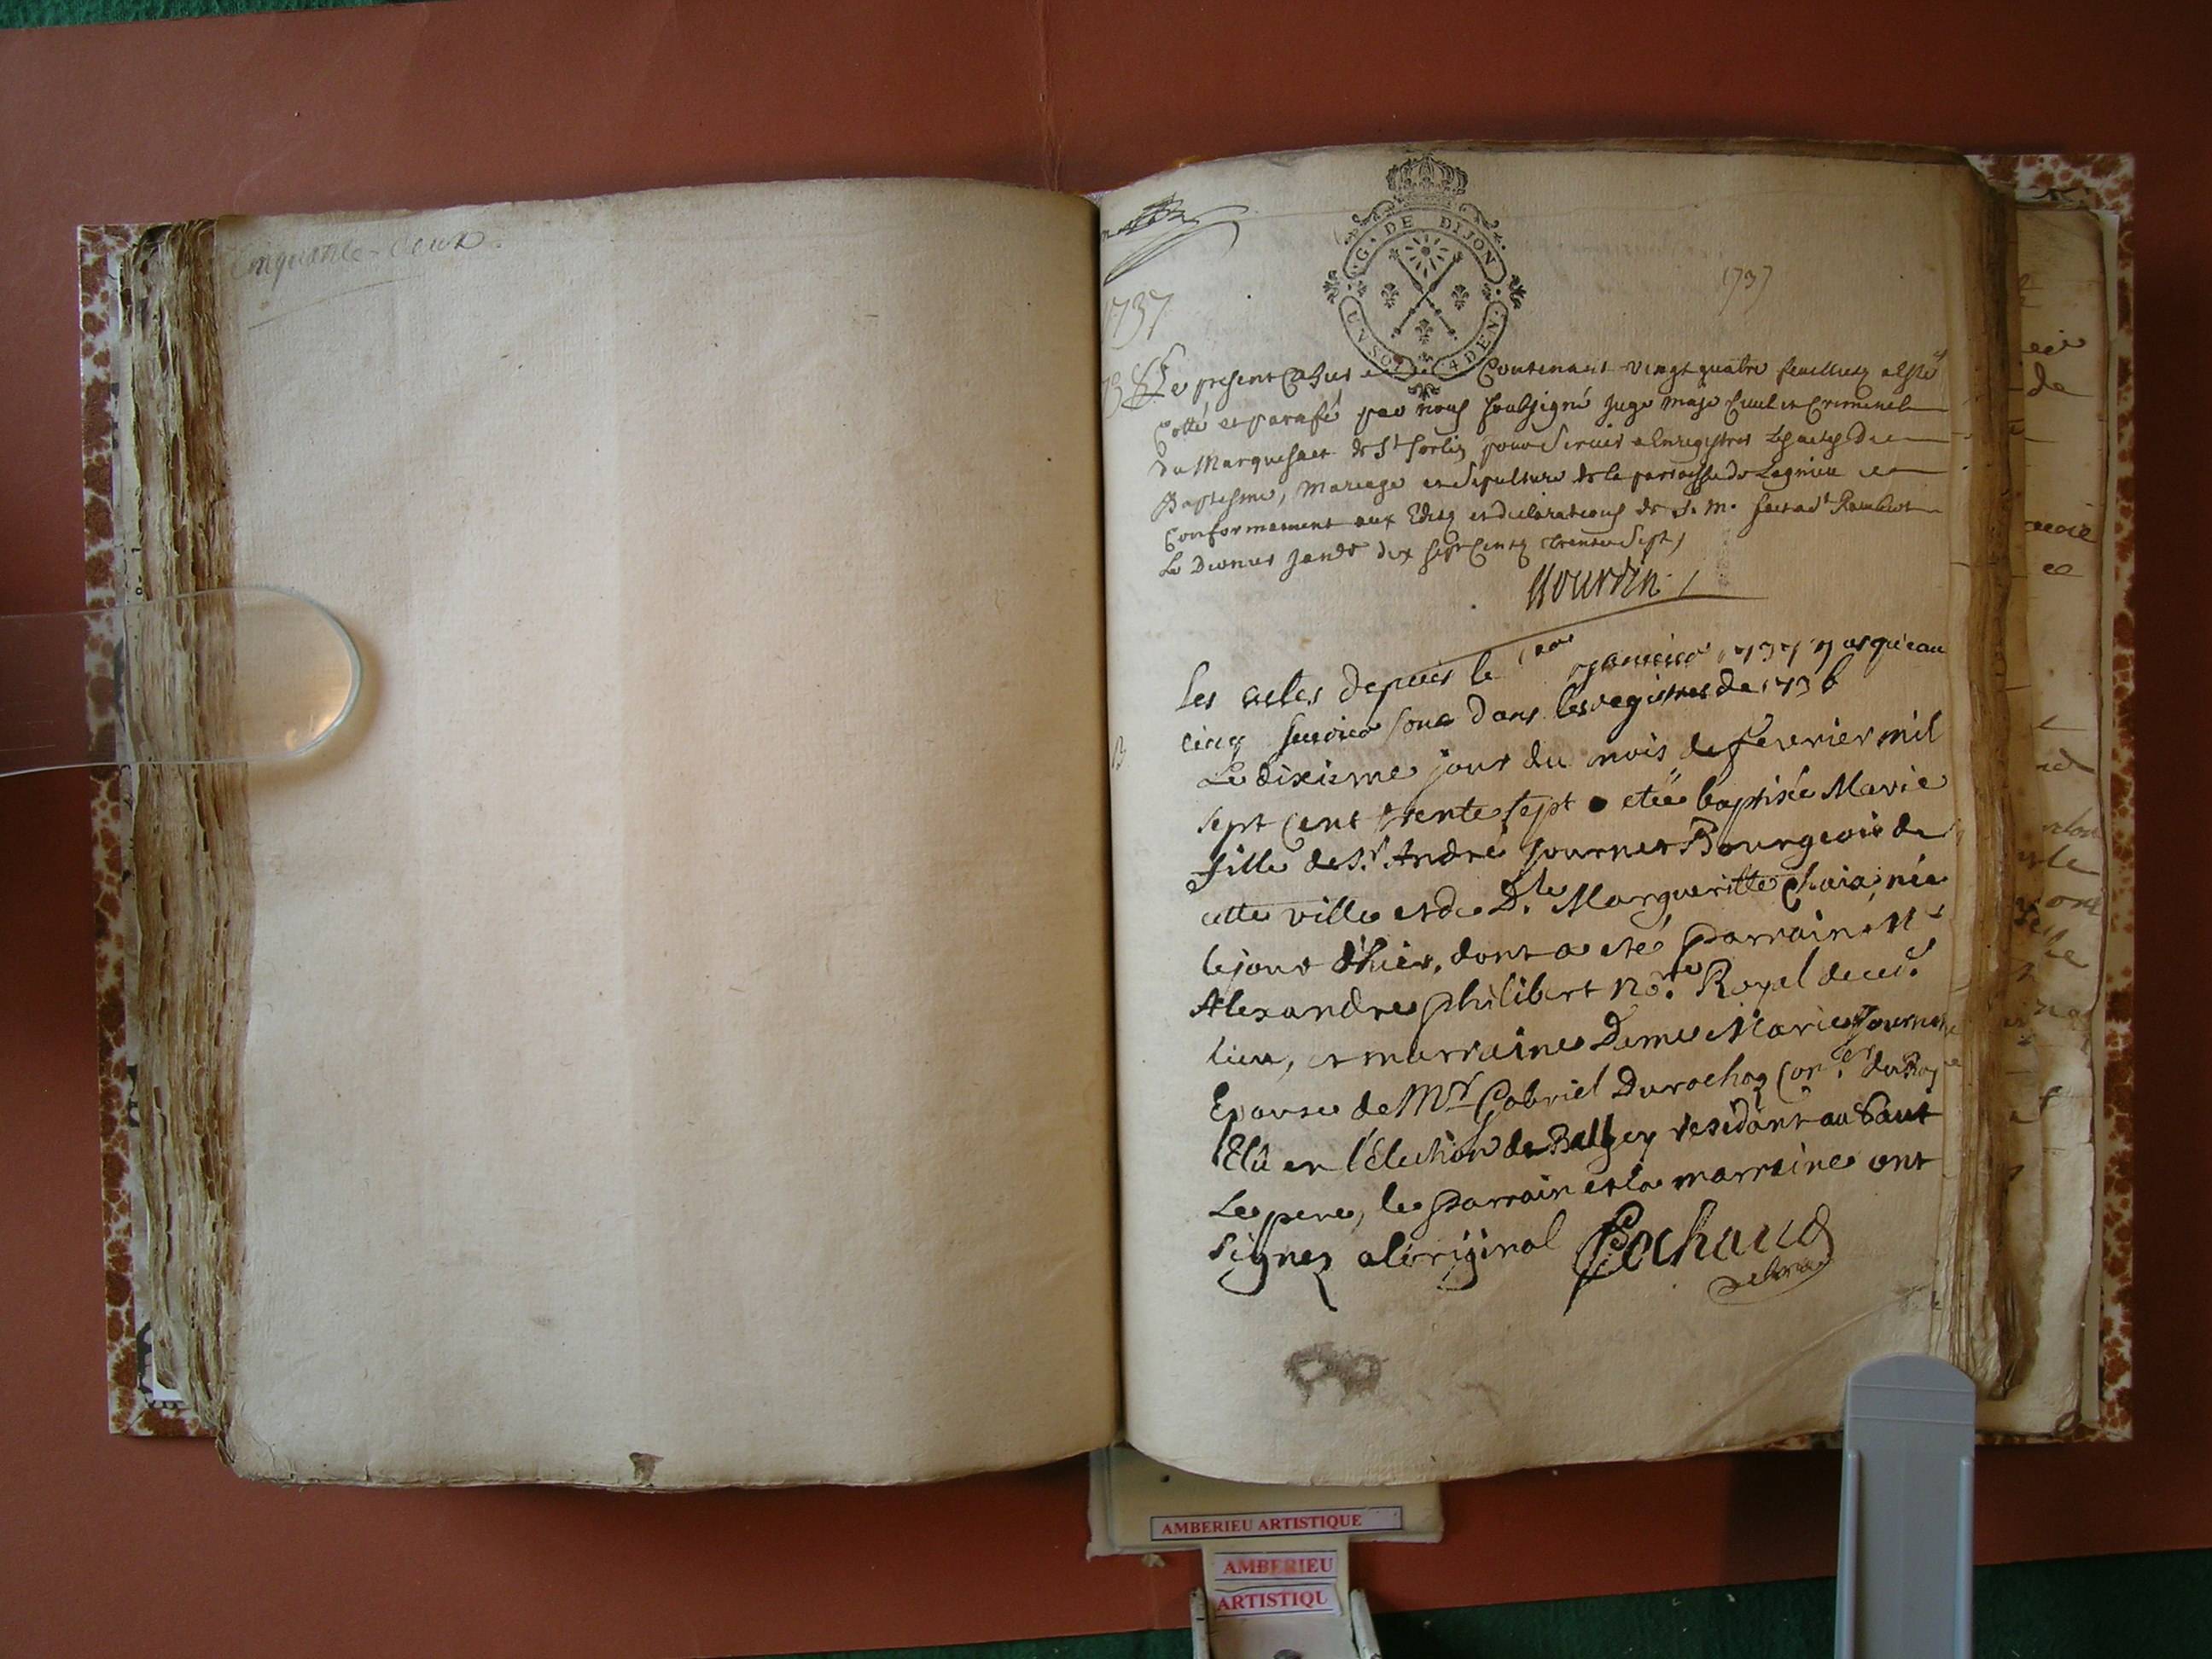 Cinquante-deux
G. DE DIJON
UN SOL 4 DEN.
1737
1737
Le present Cahier Contenant vingt quatre feuilletz a esté
Cotté et parafé par nous soubsigné Juge maje Civil et Criminel
du Marquisat de St Sorlin pour Servir a Enregistrer les actes de
Baptesme, Mariage et Sepulture de la parroisse de Lagnieu
Conformement aux Editz et declarations de S. M. fait a St Rambert
Le janvr dix sept Centz trente Sept
Mourdin
Les actes depuis le janvier 1737 jusqu'au
cinq fevrier sont dans les registres de 1736
B
Le dixieme jour du mois de fevrier mil
sept cent trente sept a eteé baptisée Marie
fille de Sr. André Journet Bourgeois de
cette ville et de D.lle Margueritte Chaix, née
le jour d'hier, dont a eté Parrain Mr
Alexandre philibert No.re Royal de ced.
lieu, et marraine Dame Marie Journet
Epouse de Mr Gabriel Durochat Con.er du Roy
Elû en l'élection de Belley residant au Saut
Le pere, le Parrain et la marraine ont
signez a l'original Cochaud
AMBERIEU ARTISTIQUE
AMBERIEU
ARTISTIQU